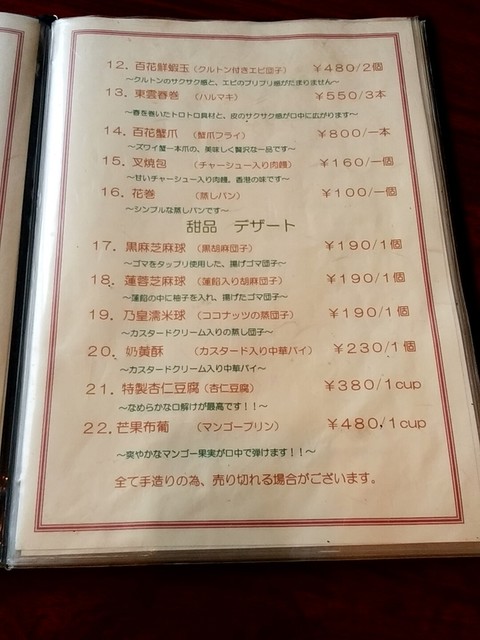 12. 百花鮮蝦玉（クルトン付きエビ団子） ￥480/2個
～クルトンのサクサク感と、エビのプリプリ感がたまりません～
13. 東雲春巻 （ハルマキ） ￥550/3本
～春を巻いたトロトロ具材と、皮のサクサク感が口中に広がります～
14. 百花蟹爪 （蟹爪フライ） ￥800/一本
～ズワイ蟹一本爪の、美味しく贅沢な一品です～
15. 叉焼包 （チャーシュー入り肉饅） ￥160/一個
～甘いチャーシュー入り肉饅、香港の味です～
16. 花巻 （蒸しパン） ￥100/一個
～シンプルな蒸しパンです～
甜品 デザート
17. 黒麻芝麻球 （黒胡麻団子） ￥190/1個
～ゴマをタップリ使用した、揚げゴマ団子～
18. 蓮蓉芝麻球 （蓮餡入り胡麻団子） ￥190/1個
～蓮餡の中に柚子を入れ、揚げたゴマ団子～
19. 乃皇濡米球 （ココナッツの蒸団子） ￥190/1個
～カスタードクリーム入りの蒸し団子～
20. 奶黄酥 （カスタード入り中華パイ） ￥230/1個
～カスタードクリーム入り中華パイ～
21. 特製杏仁豆腐（杏仁豆腐） ￥380/1cup
～なめらかな口解けが最高です！！～
22. 芒果布葡 （マンゴープリン） ￥480/1cup
～爽やかなマンゴー果実が口中で弾けます！！～
全て手造りの為、売り切れる場合がございます。